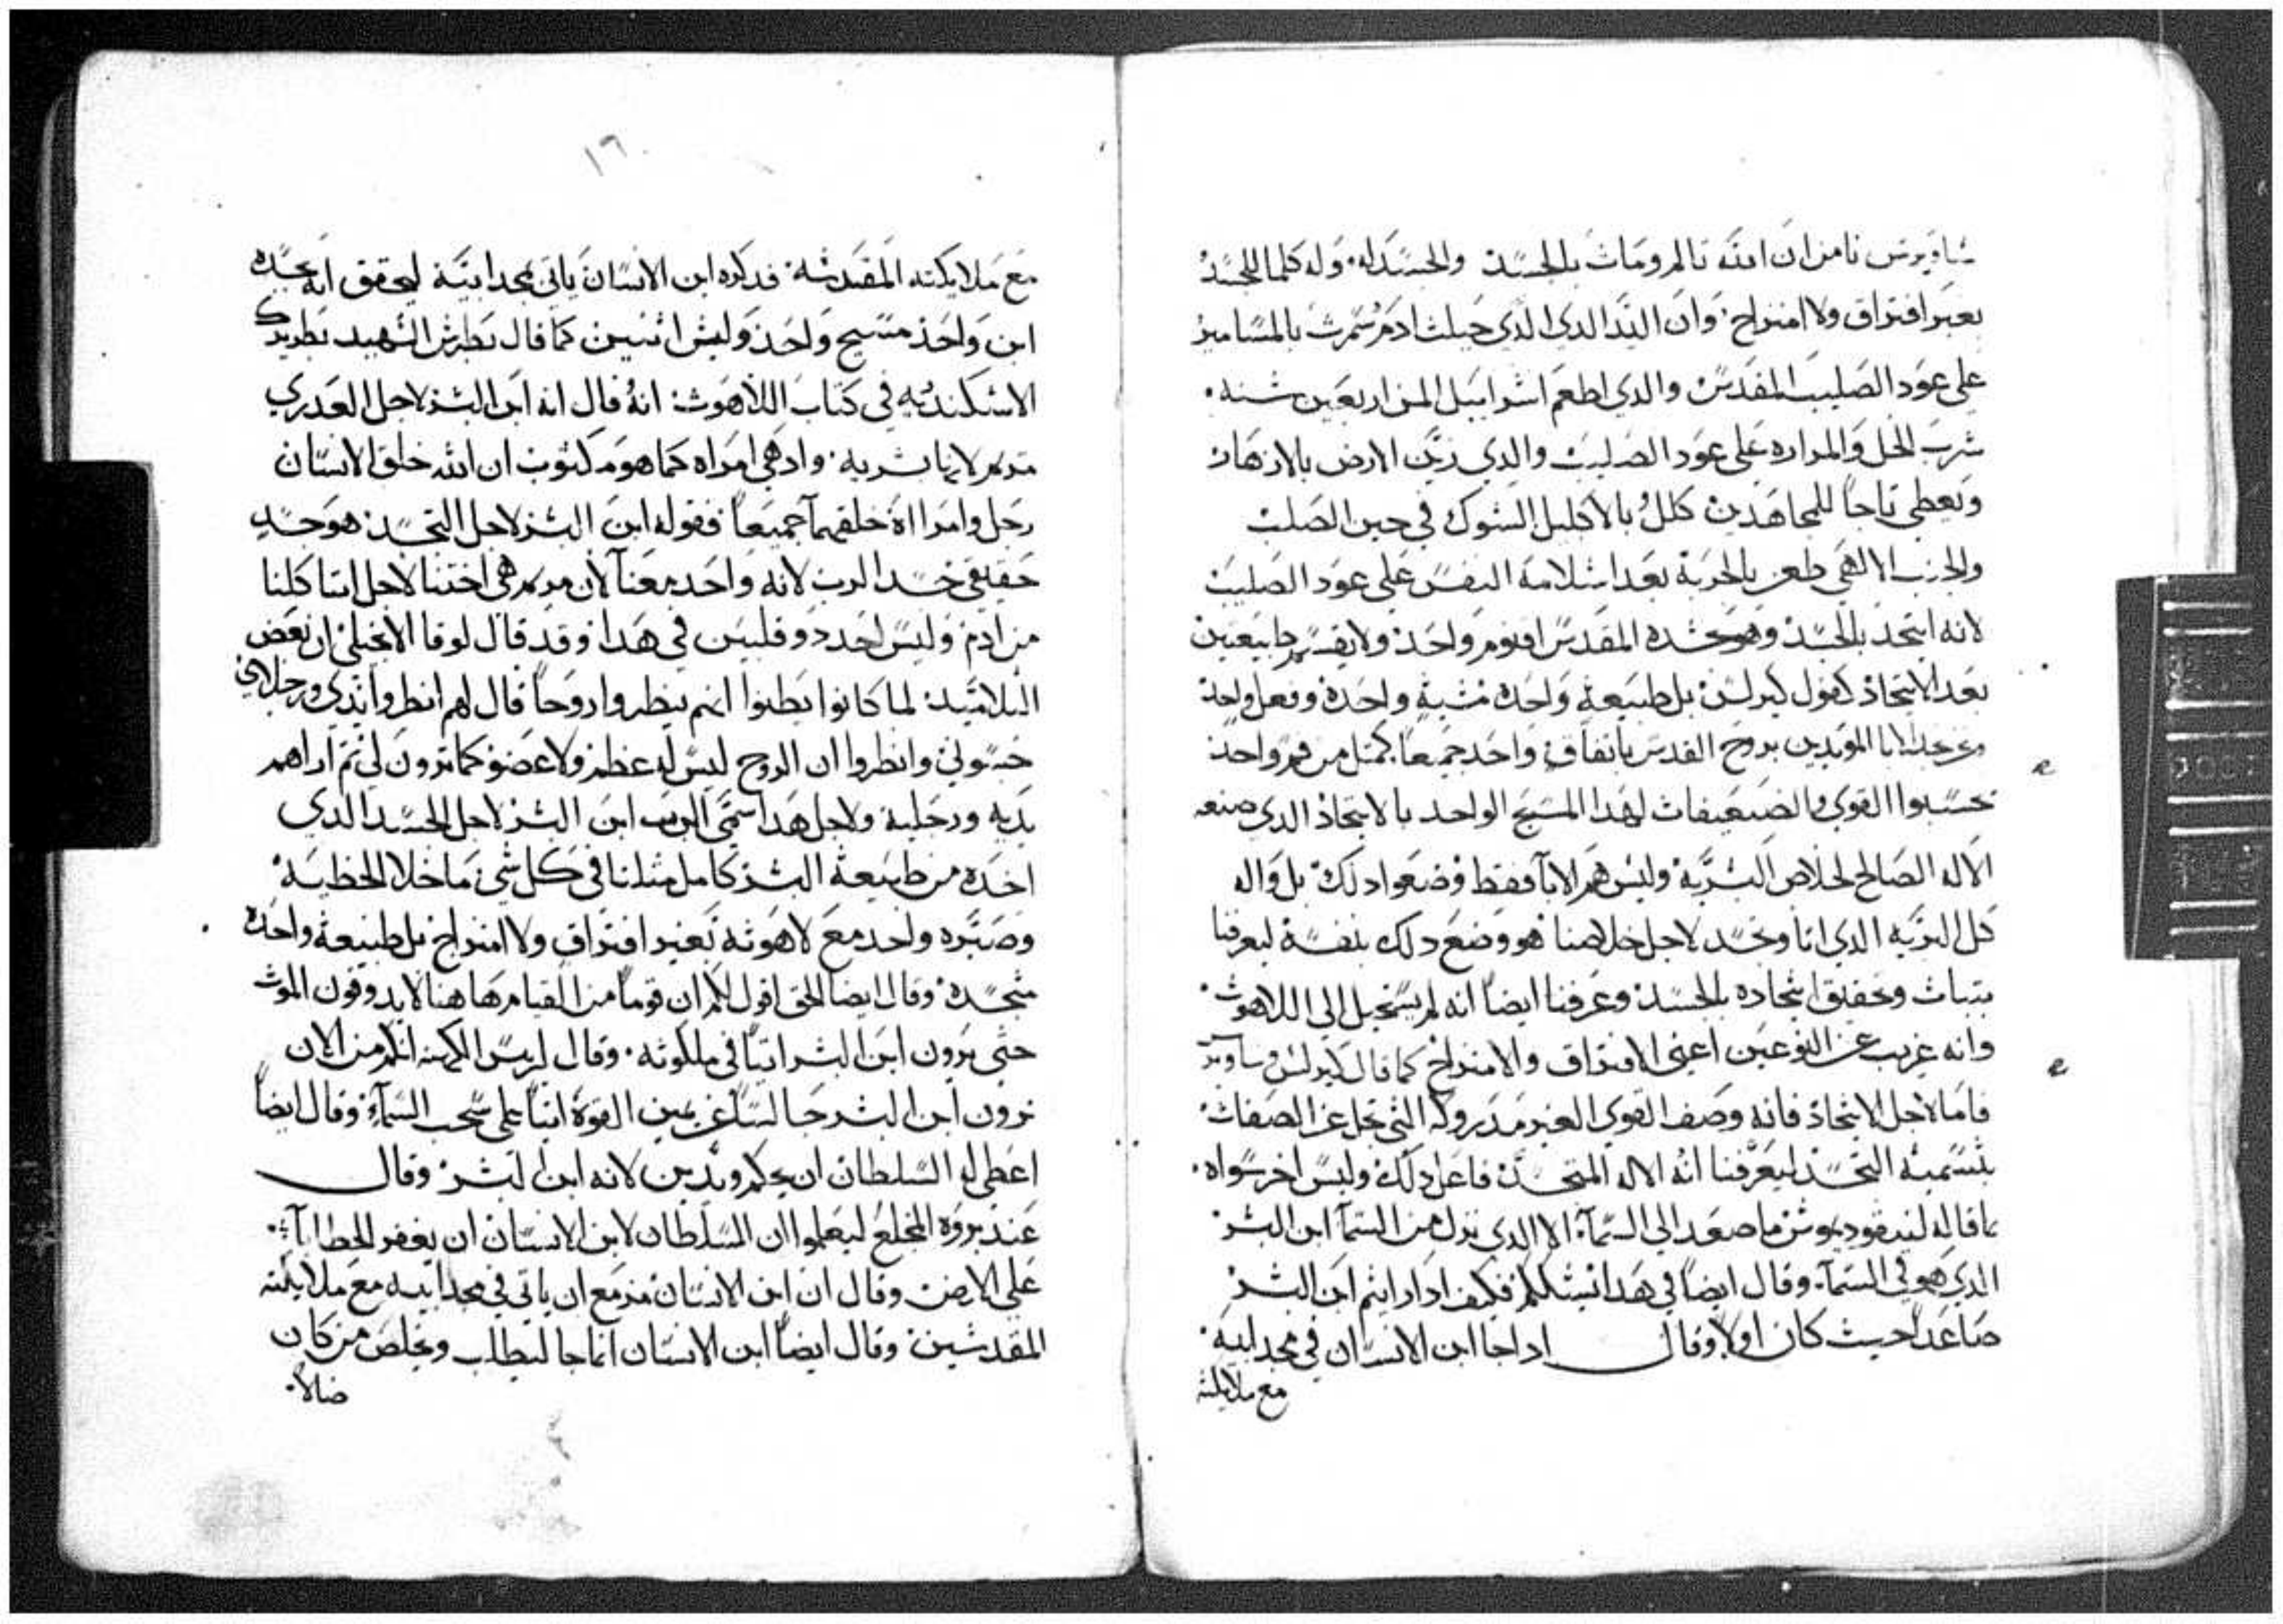 ساويرس نامن ان الله تالم ومات بالجسد والجسد له وله كلما للجسد
بغير افتراق ولا امتزاج وان اليد الدى الدى جبلت ادم سمرت بالمسامير
على عود الصليب المقدس والدي اطعم اسراييل المن اربعين سنه
شرب الخل والمراره على عود الصليب والدي زين الارض بالازهار
ويعطي تاجا للمجاهدين كلل بالاكليل الشوك في حين الصلب
والجنب الالاهي طعن بالحربة بعد اسلامه النفس على عود الصليب
لانه اتحد بالجسد وهو وجسده المقدس اقنوم واحد ولا يقسم طبيعتين
بعد الاتحاد كقول كيرلس بل طبيعة واحدة مشية واحدة وفعل واحد
ونجد الابا المويدين بروح القدس باتفاق واحد جميعا كمثل من فم واحد
نسبوا القوي والضعيفات لهدا المسيح الواحد بالاتحاد الدي صنعه
الاله الصالح لخلاص البشرية وليس هم الابا فقط وضعوا دلك بل واله
كل البريه الدي اتا وتجسد لاجل خلاصنا هو وضع دلك بنفسه ليعرفنا
بتبات وتحقيق اتحاده بالجسد وعرفنا ايضا انه لم يستحيل الى اللاهوت
وانه غريب عن النوعين اعني الافتراق والامتزاج كما قال كيرلس وساويرس
فاما لاجل الاتحاد فانه وصف القوي الغير مدروكه التي تجل عن الصفات
بتسمية التجسد ليعرفنا انه الاله المتجسد فاعل دلك وليس اخر سواه
ما قاله لنيقوديموس ما صعد الى السمآ الا الدي نزل من السمآ ابن البشر
الدي هو في السمآ وقال ايضا في هدا نشككم فكيف ادا رايتم ابن البشر
صاعدا حيث كان اولا وقال ادا جا ابن الانسان في مجد ابيه
مع ملايكته
١٦
مع ملايكته المقدسه فدكره ابن الانسان ياتي بمجد ابيه ليحقق انه بجسده
ابن واحد مسيح واحد وليس اثنين كما قال بطرس الشهيد بطريرك
الاسكندريه في كتاب اللاهوت انه قال انه ابن البشر لاجل العدري
مريم لانها بشريه واد هي امراه كما هو مكتوب ان الله خلق الانسان
رجل وامرااة خلقهما جميعا فقوله ابن البشر لاجل التجسد هو جسد
حقيقي جسد الرب لانه واحد معنا لان مريم هي اختنا لاجل اننا كلنا
من ادم وليس احد دو قلبين في هدا وقد قال لوقا الانجيلي ان بعض
التلاميد لما كانوا يظنوا انهم ينظروا روحا قال لهم انظروا يدي ورجلاي
جسوني وانظروا ان الروح ليس له عظم ولا عضو كما ترون لي ثم اراهم
يديه ورجليه ولاجل هدا اسمي الرب ابن البشر لاجل الجسد الدي
اخده من طبيعة البشر كامل مثلنا في كل شي ما خلا الخطيه
وصيره واحد مع لاهوته بغير افتراق ولا امتزاج بل طبيعة واحده
متجسده وقال ايضا الحق اقول لكم ان قوما من القيام هاهنا لا يدوقون الموت
حتى يرون ابن البشر اتيا في ملكوته وقال لريس الكهنه انكم من الان
ترون ابن البشر جالسا عن يمين القوة اتيا على سحب السمآ وقال ايضا
اعطى له السلطان ان يحكم ويدين لانه ابن البشر وقال
عند بروه المخلع ليعلموا ان السلطان لابن الانسان ان يغفر الخطايا
على الارض وقال ان ابن الانسان مزمع ان ياتي في مجد ابيه مع ملايكته
المقدسين وقال ايضا ابن الانسان انما جا ليطلب ويخلص من كان
ضالا